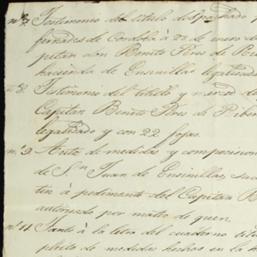 nº 7. Testimonio del titulo despachado p
fernades de Cordova á 22 de enero de
pitan don Benito Peres de Ri
hacienda de Ensinillas legalizado
nº 8. Testimonio del titulo y merced de
Capitan Benito Peres de Riber
legalizado y con 22 fojas.
nº 9 Autos de medidas y composicion
de Sn. Juan de Ensinillas, sus
tos á pedimento del Capitan B
autorizado por mano de quien
nº 11 Junto á la letra del cuaderno
pleito de medidas hechas en la